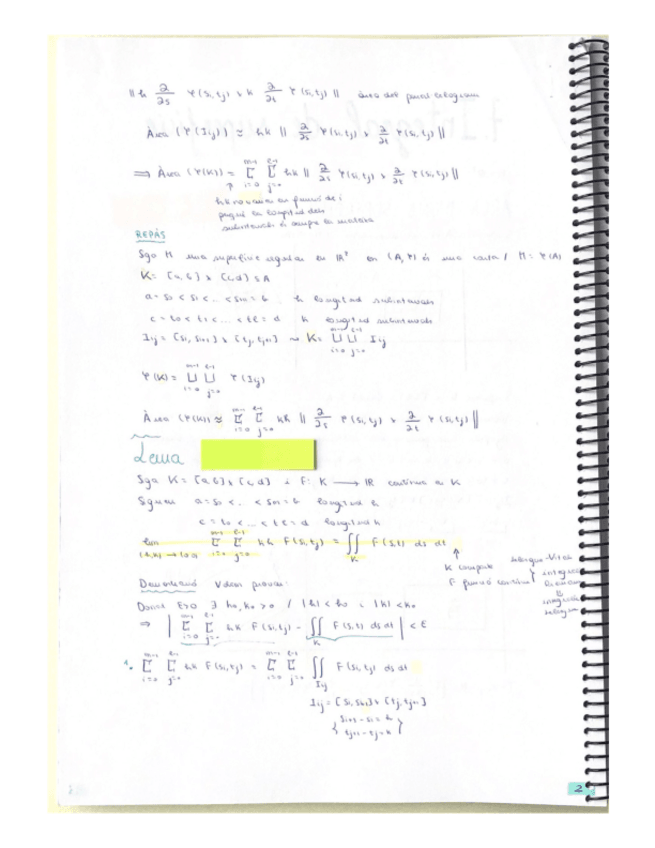 || h ∂/∂s Ψ(si,tj) × k ∂/∂t Ψ(si,tj) || àrea del paral·lelogram
Àrea (Ψ(Iij)) ≈ hk || ∂/∂s Ψ(si,tj) × ∂/∂t Ψ(si,tj) ||
⟹ Àrea (Ψ(K)) ≈ Σ_{i=0}^{m-1} Σ_{j=0}^{l-1} hk || ∂/∂s Ψ(si,tj) × ∂/∂t Ψ(si,tj) ||
hk no varia en funció de i
perquè la longitud dels
subintervals és sempre la mateixa
REPÀS
Sga M una superfície regular en IR³ on (A,Ψ) és una carta / M = Ψ(A)
K = [a,b] × [c,d] ⊆ A
a = s0 < s1 < .. < sm = b h longitud subintervals
c = t0 < t1 < ... < tl = d k longitud subintervals
Iij = [si, si+1] × [tj, tj+1] ~ K = ⊔_{i=0}^{m-1} ⊔_{j=0}^{l-1} Iij
Ψ(K) = ⊔_{i=0}^{m-1} ⊔_{j=0}^{l-1} Ψ(Iij)
Àrea (Ψ(K)) ≈ Σ_{i=0}^{m-1} Σ_{j=0}^{l-1} hk || ∂/∂s Ψ(si,tj) × ∂/∂t Ψ(si,tj) ||
Lema
Sga K = [a,b] × [c,d] i F: K ⟶ IR contínua a K
Siguin a = s0 < .. < sm = b longitud h
c = t0 < ... < tl = d longitud k
lim_{(h,k) → (0,0)} Σ_{i=0}^{m-1} Σ_{j=0}^{l-1} hk F(si,tj) = ∬_K F(s,t) ds dt
K compacte
F funció contínua
integrable
Demostració Volem provar:
Donat ε>0 ∃ h0, k0 > 0 / |h| < h0 i |k| < k0
⟹ | Σ_{i=0}^{m-1} Σ_{j=0}^{l-1} hk F(si,tj) - ∬_K F(s,t) ds dt | < ε
1. Σ_{i=0}^{m-1} Σ_{j=0}^{l-1} hk F(si,tj) = Σ_{i=0}^{m-1} Σ_{j=0}^{l-1} ∬_{Iij} F(si,tj) ds dt
Iij = [si, si+1] × [tj, tj+1]
{ si+1 - si = h
tj+1 - tj = k }
2